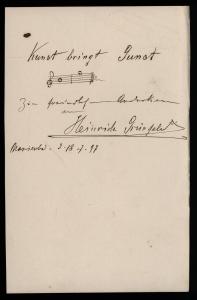 Kunst bringt Gunst
Zur freundl. Andenken
an
Heinrich Grünfeld
Marienbad 3 18 7 97